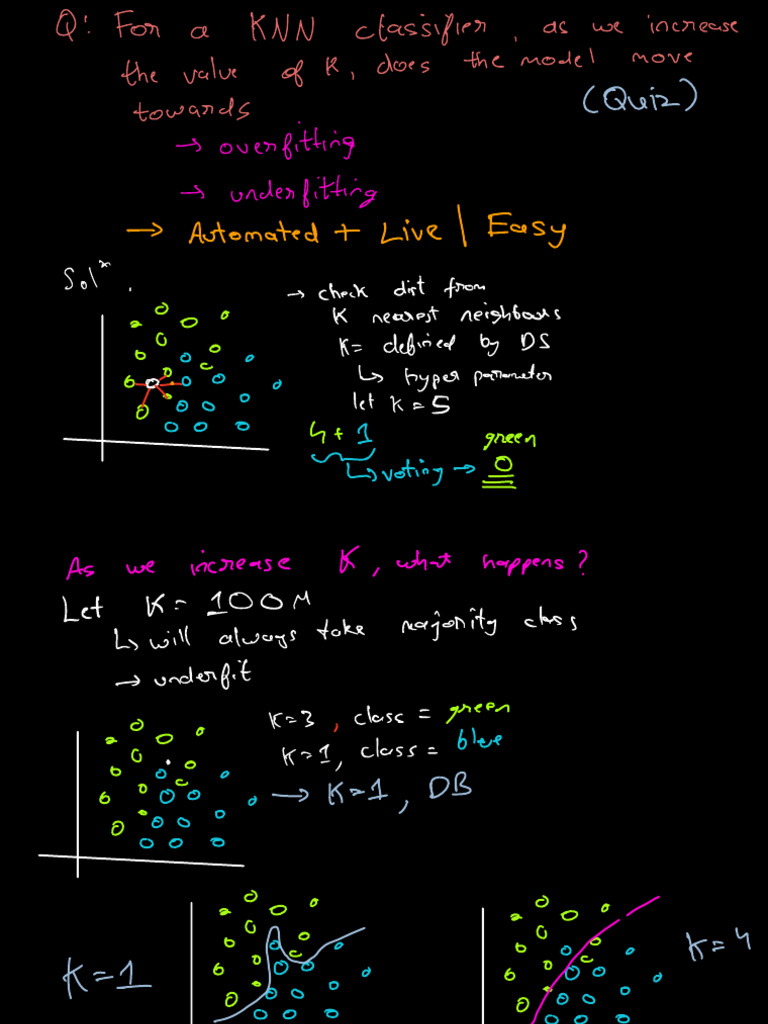 Q: For a KNN classifier, as we increase
the value of K, does the model move
towards (Quiz)
→ overfitting
→ underfitting
→ Automated + Live | Easy
Solⁿ.
→ check dist from
K nearest neighbours
K= defined by DS
↳ hyper parameter
let K = 5
4 + 1
↳ voting → green
As we increase K, what happens?
Let K = 100M
↳ will always take majority class
→ underfit
K=3, class = green
K=1, class = blue
→ K=1, DB
K=1
K=4